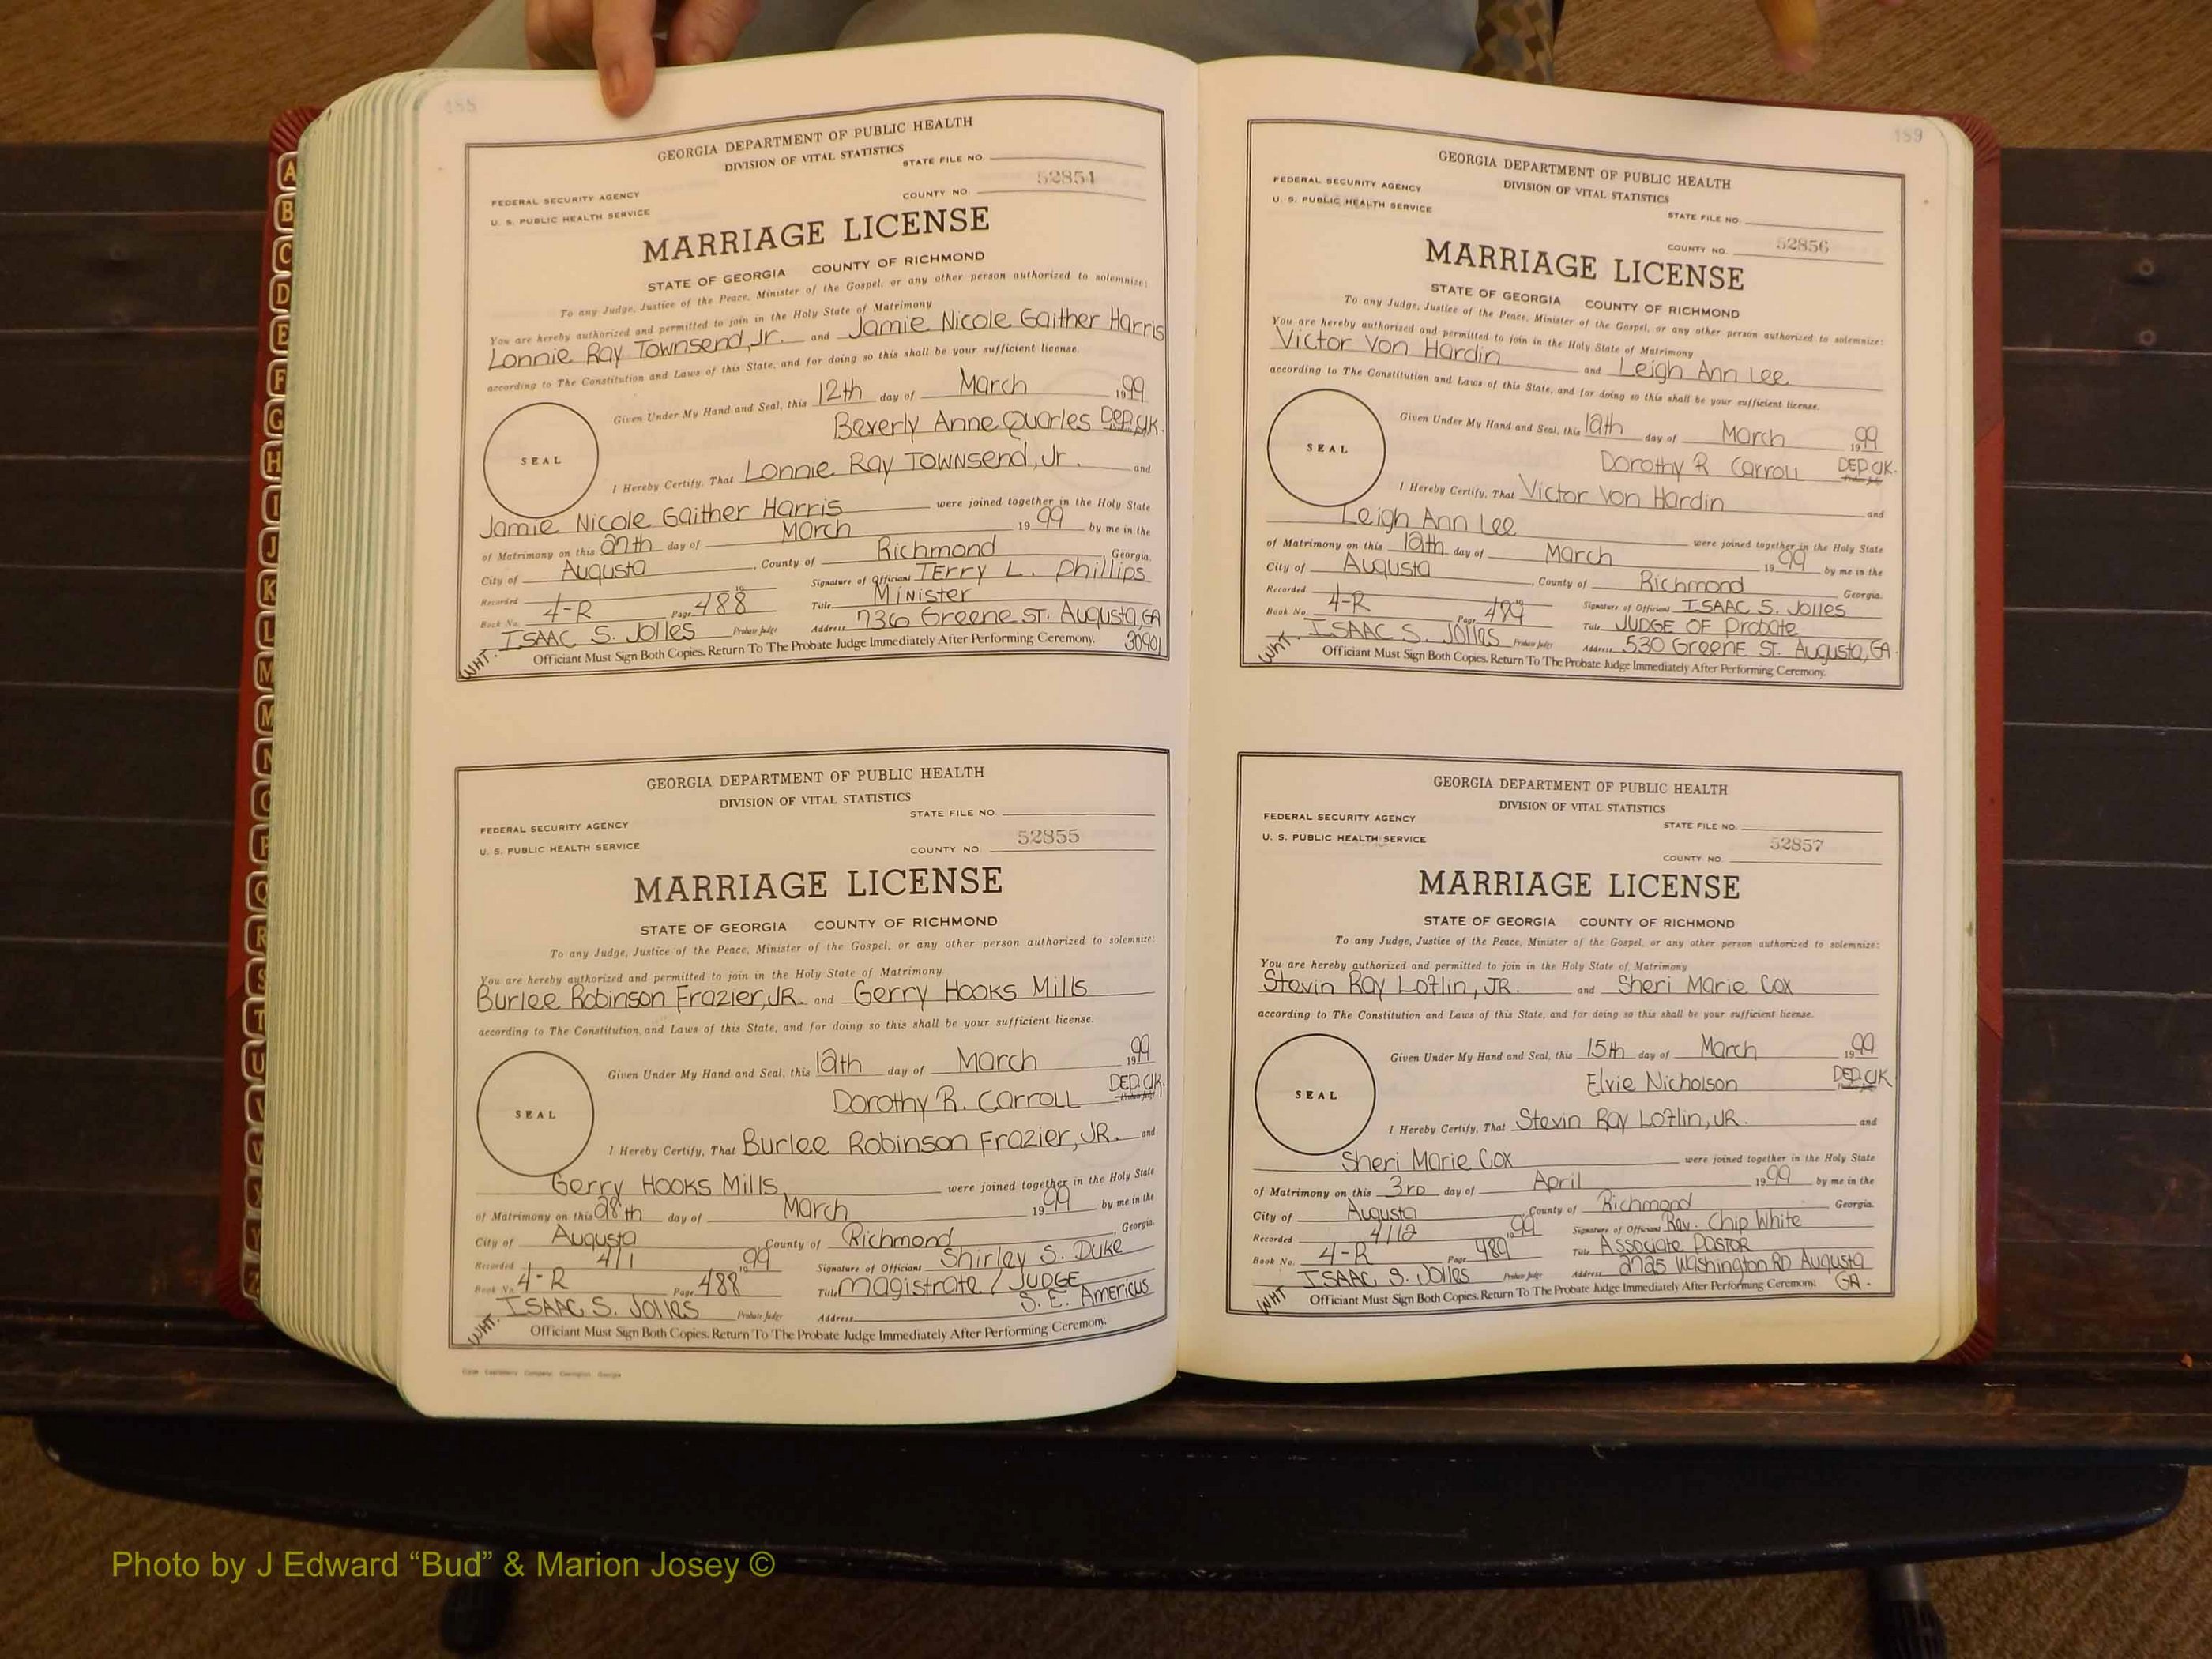 GEORGIA DEPARTMENT OF PUBLIC HEALTH
DIVISION OF VITAL STATISTICS
STATE FILE NO.
FEDERAL SECURITY AGENCY
U. S. PUBLIC HEALTH SERVICE
COUNTY NO. 52854
MARRIAGE LICENSE
STATE OF GEORGIA COUNTY OF RICHMOND
To any Judge, Justice of the Peace, Minister of the Gospel, or any other person authorized to solemnize:
You are hereby authorized and permitted to join in the Holy State of Matrimony
Lonnie Ray Townsend, Jr. and Jamie Nicole Gaither Harris
according to The Constitution and Laws of this State, and for doing so this shall be your sufficient license.
Given Under My Hand and Seal, this 12th day of March 1999
Beverly Anne Quarles DEP. CLK.
SEAL
I Hereby Certify, That Lonnie Ray Townsend, Jr. and
Jamie Nicole Gaither Harris were joined together in the Holy State
of Matrimony on this 27th day of March 1999 by me in the
City of Augusta, County of Richmond, Georgia.
Recorded 19 Signature of Officiant Terry L. Phillips
Book No. 4-R Page 488 Title Minister
ISAAC S. Jolles Probate Judge Address 736 Greene ST. Augusta, GA 30901
WHT. Officiant Must Sign Both Copies. Return To The Probate Judge Immediately After Performing Ceremony.
GEORGIA DEPARTMENT OF PUBLIC HEALTH
DIVISION OF VITAL STATISTICS
STATE FILE NO.
FEDERAL SECURITY AGENCY
U. S. PUBLIC HEALTH SERVICE
COUNTY NO. 52855
MARRIAGE LICENSE
STATE OF GEORGIA COUNTY OF RICHMOND
To any Judge, Justice of the Peace, Minister of the Gospel, or any other person authorized to solemnize:
You are hereby authorized and permitted to join in the Holy State of Matrimony
Burlee Robinson Frazier, JR. and Gerry Hooks Mills
according to The Constitution and Laws of this State, and for doing so this shall be your sufficient license.
Given Under My Hand and Seal, this 12th day of March 1999
Dorothy R. Carroll DEP. CLK.
SEAL
I Hereby Certify, That Burlee Robinson Frazier, JR. and
Gerry Hooks Mills were joined together in the Holy State
of Matrimony on this 28th day of March 1999 by me in the
City of Augusta County of Richmond Georgia.
Recorded 4/1 1999 Signature of Officiant Shirley S. Duke
Book No. 4-R Page 488 Title Magistrate / JUDGE
ISAAC S. Jolles Probate Judge Address S. E. Americus
WHT. Officiant Must Sign Both Copies. Return To The Probate Judge Immediately After Performing Ceremony.
159
GEORGIA DEPARTMENT OF PUBLIC HEALTH
DIVISION OF VITAL STATISTICS
FEDERAL SECURITY AGENCY
U. S. PUBLIC HEALTH SERVICE
STATE FILE NO.
COUNTY NO. 52856
MARRIAGE LICENSE
STATE OF GEORGIA COUNTY OF RICHMOND
To any Judge, Justice of the Peace, Minister of the Gospel, or any other person authorized to solemnize:
You are hereby authorized and permitted to join in the Holy State of Matrimony
Victor Von Hardin and Leigh Ann Lee
according to The Constitution and Laws of this State, and for doing so this shall be your sufficient license.
Given Under My Hand and Seal, this 12th day of March 1999
Dorothy R Carroll DEP. CLK.
SEAL
I Hereby Certify, That Victor Von Hardin and
Leigh Ann Lee were joined together in the Holy State
of Matrimony on this 12th day of March 1999 by me in the
City of Augusta, County of Richmond Georgia.
Recorded 19 Signature of Officiant ISAAC S. Jolles
Book No. 4-R Page Title JUDGE OF Probate
ISAAC S. Jolles Probate Judge Address 530 Greene ST. Augusta, GA
WHT. Officiant Must Sign Both Copies. Return To The Probate Judge Immediately After Performing Ceremony.
GEORGIA DEPARTMENT OF PUBLIC HEALTH
DIVISION OF VITAL STATISTICS
FEDERAL SECURITY AGENCY
U. S. PUBLIC HEALTH SERVICE
STATE FILE NO.
COUNTY NO. 52857
MARRIAGE LICENSE
STATE OF GEORGIA COUNTY OF RICHMOND
To any Judge, Justice of the Peace, Minister of the Gospel, or any other person authorized to solemnize:
You are hereby authorized and permitted to join in the Holy State of Matrimony
Stevin Ray Loflin, JR. and Sheri Marie Cox
according to The Constitution and Laws of this State, and for doing so this shall be your sufficient license.
Given Under My Hand and Seal, this 15th day of March 1999
Elvie Nicholson DEP. CLK
SEAL
I Hereby Certify, That Stevin Ray Loflin, JR. and
Sheri Marie Cox were joined together in the Holy State
of Matrimony on this 3rd day of April 1999 by me in the
City of Augusta, County of Richmond Georgia.
Recorded 4/12 1999 Signature of Officiant Rev. Chip White
Book No. 4-R Page 489 Title Associate Pastor
ISAAC S. Jolles Probate Judge Address 2725 Washington RD Augusta GA.
WHT Officiant Must Sign Both Copies. Return To The Probate Judge Immediately After Performing Ceremony.
A
B
C
D
E
F
G
H
I
J
K
L
M
M
N
O
P
Q
R
S
T
U
V
W
X
Y
Z
Photo by J Edward “Bud” & Marion Josey ©